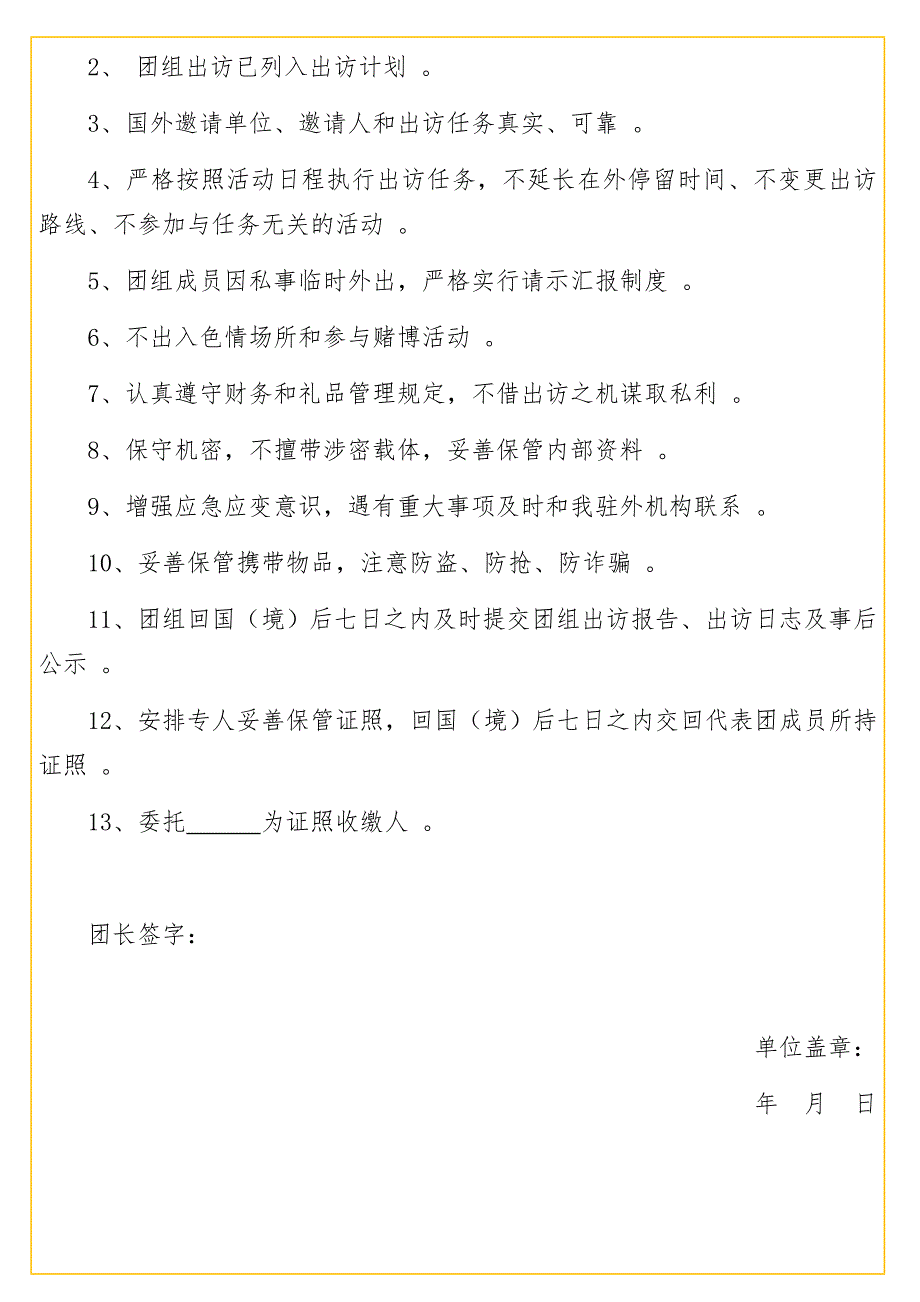 2、 团组出访已列入出访计划 。
3、国外邀请单位、邀请人和出访任务真实、可靠 。
4、严格按照活动日程执行出访任务，不延长在外停留时间、不变更出访
路线、不参加与任务无关的活动 。
5、团组成员因私事临时外出，严格实行请示汇报制度 。
6、不出入色情场所和参与赌博活动 。
7、认真遵守财务和礼品管理规定，不借出访之机谋取私利 。
8、保守机密，不擅带涉密载体，妥善保管内部资料 。
9、增强应急应变意识，遇有重大事项及时和我驻外机构联系 。
10、妥善保管携带物品，注意防盗、防抢、防诈骗 。
11、团组回国（境）后七日之内及时提交团组出访报告、出访日志及事后
公示 。
12、安排专人妥善保管证照，回国（境）后七日之内交回代表团成员所持
证照 。
13、委托______为证照收缴人 。
团长签字：
单位盖章：
年 月 日